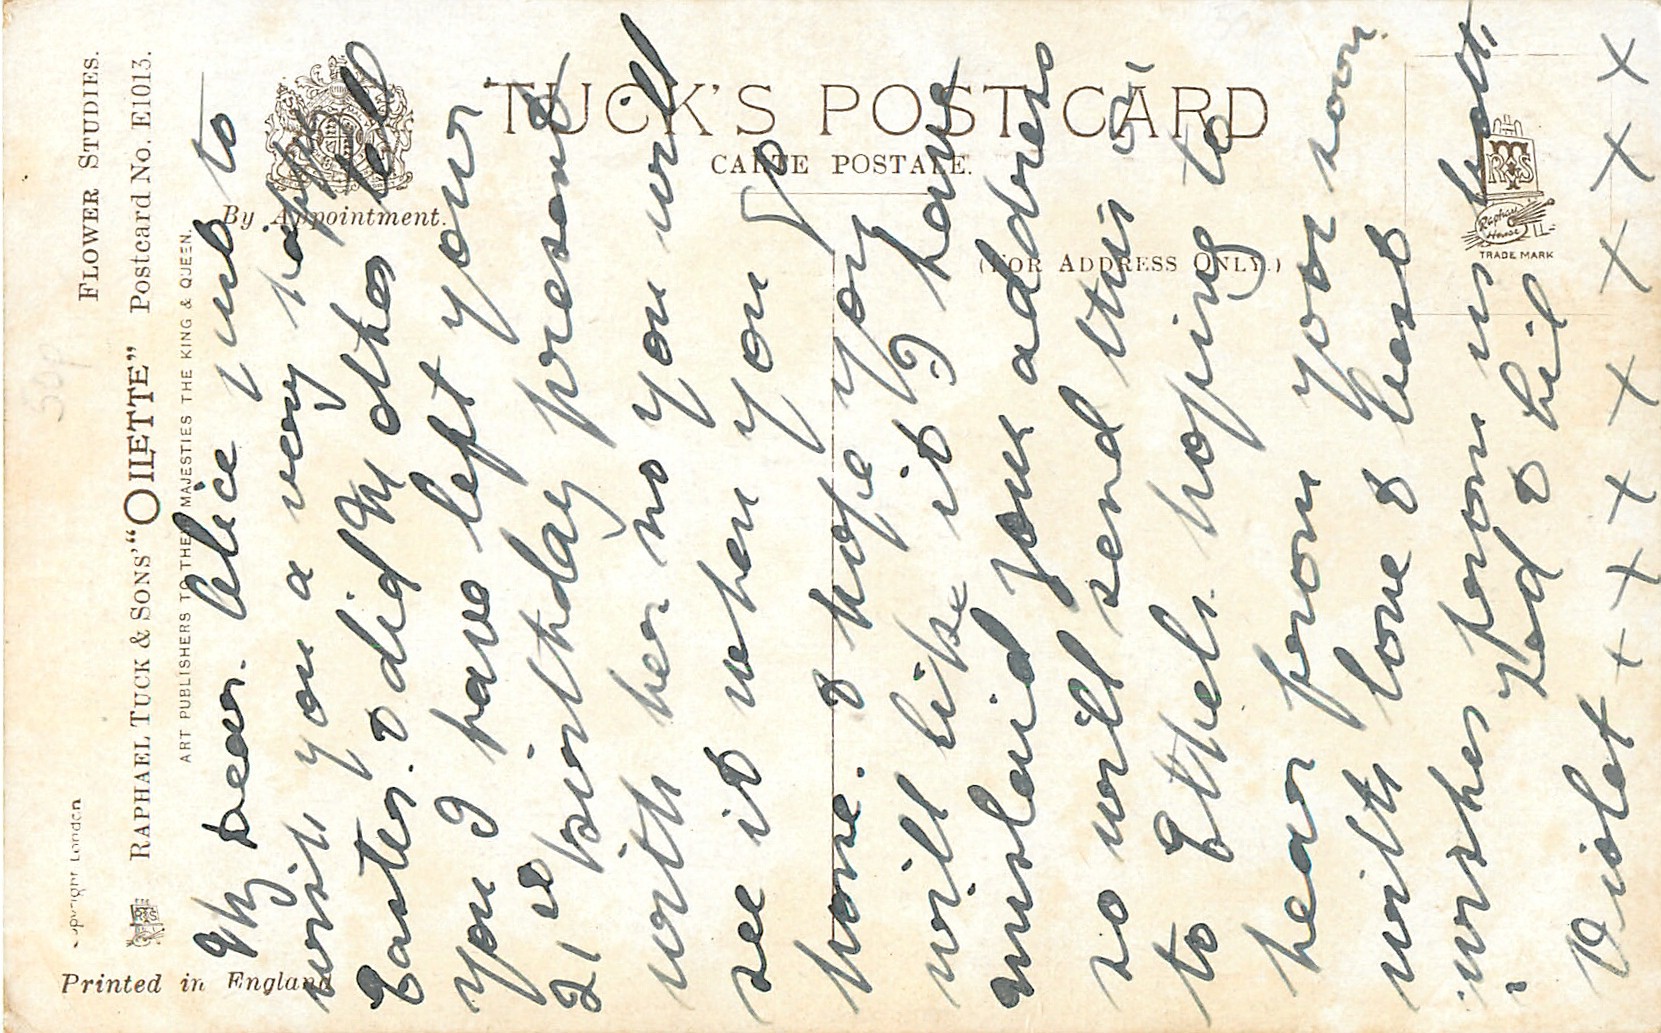 FLOWER STUDIES.
RAPHAEL TUCK & SONS' "OILETTE" Postcard No. E1013.
ART PUBLISHERS TO THEIR MAJESTIES THE KING & QUEEN.
Copyright London
Printed in England
50p
By Appointment.
TUCK'S POST CARD
CARTE POSTALE.
(FOR ADDRESS ONLY.)
RTS
Raphael House
TRADE MARK
My Dear. Alice just to
wish you a very happy
Easter. & did Mother tell
you I have left your
21st birthday present
with her no you will
see it when you go
home. & hope you
will like it I have
muslaid your address
so will send this on
to Ethels. hoping to
hear from you soon.
with love & best
wishes from us both
Ted & Lil
Violet + x x x x x x x